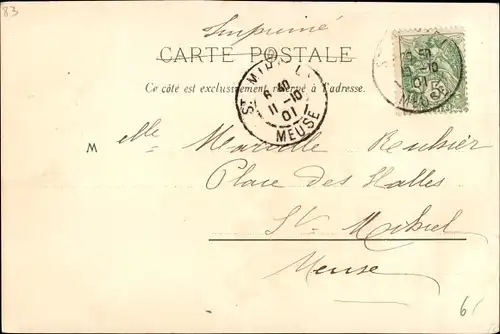 83
Imprimé
CARTE POSTALE
Ce côté est exclusivement réservé à l'adresse.
ST MIHIEL
6 40
11 -10
01
MEUSE
50
-10
01
MEUSE
5
Melle Marcelle
Place des Halles
St. Mihiel
Meuse
6